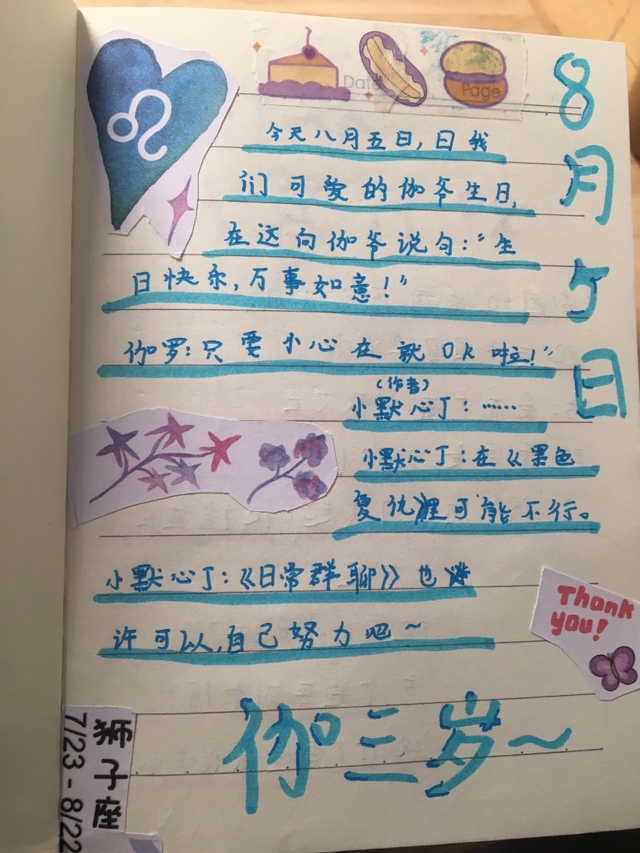 Date
Page
8月5日
今天八月五日,日我
们可爱的伽爷生日,
在这向伽爷说句:"生
日快乐,万事如意!"
伽罗:只要小心在就OK啦!"
(作者)
小默心丁:……
小默心丁:在《黑色
复仇裡可能不行。
小默心丁:《日常群聊》也
许可以,自己努力吧~
Thank
you!
伽三岁~
狮子座
7/23-8/22